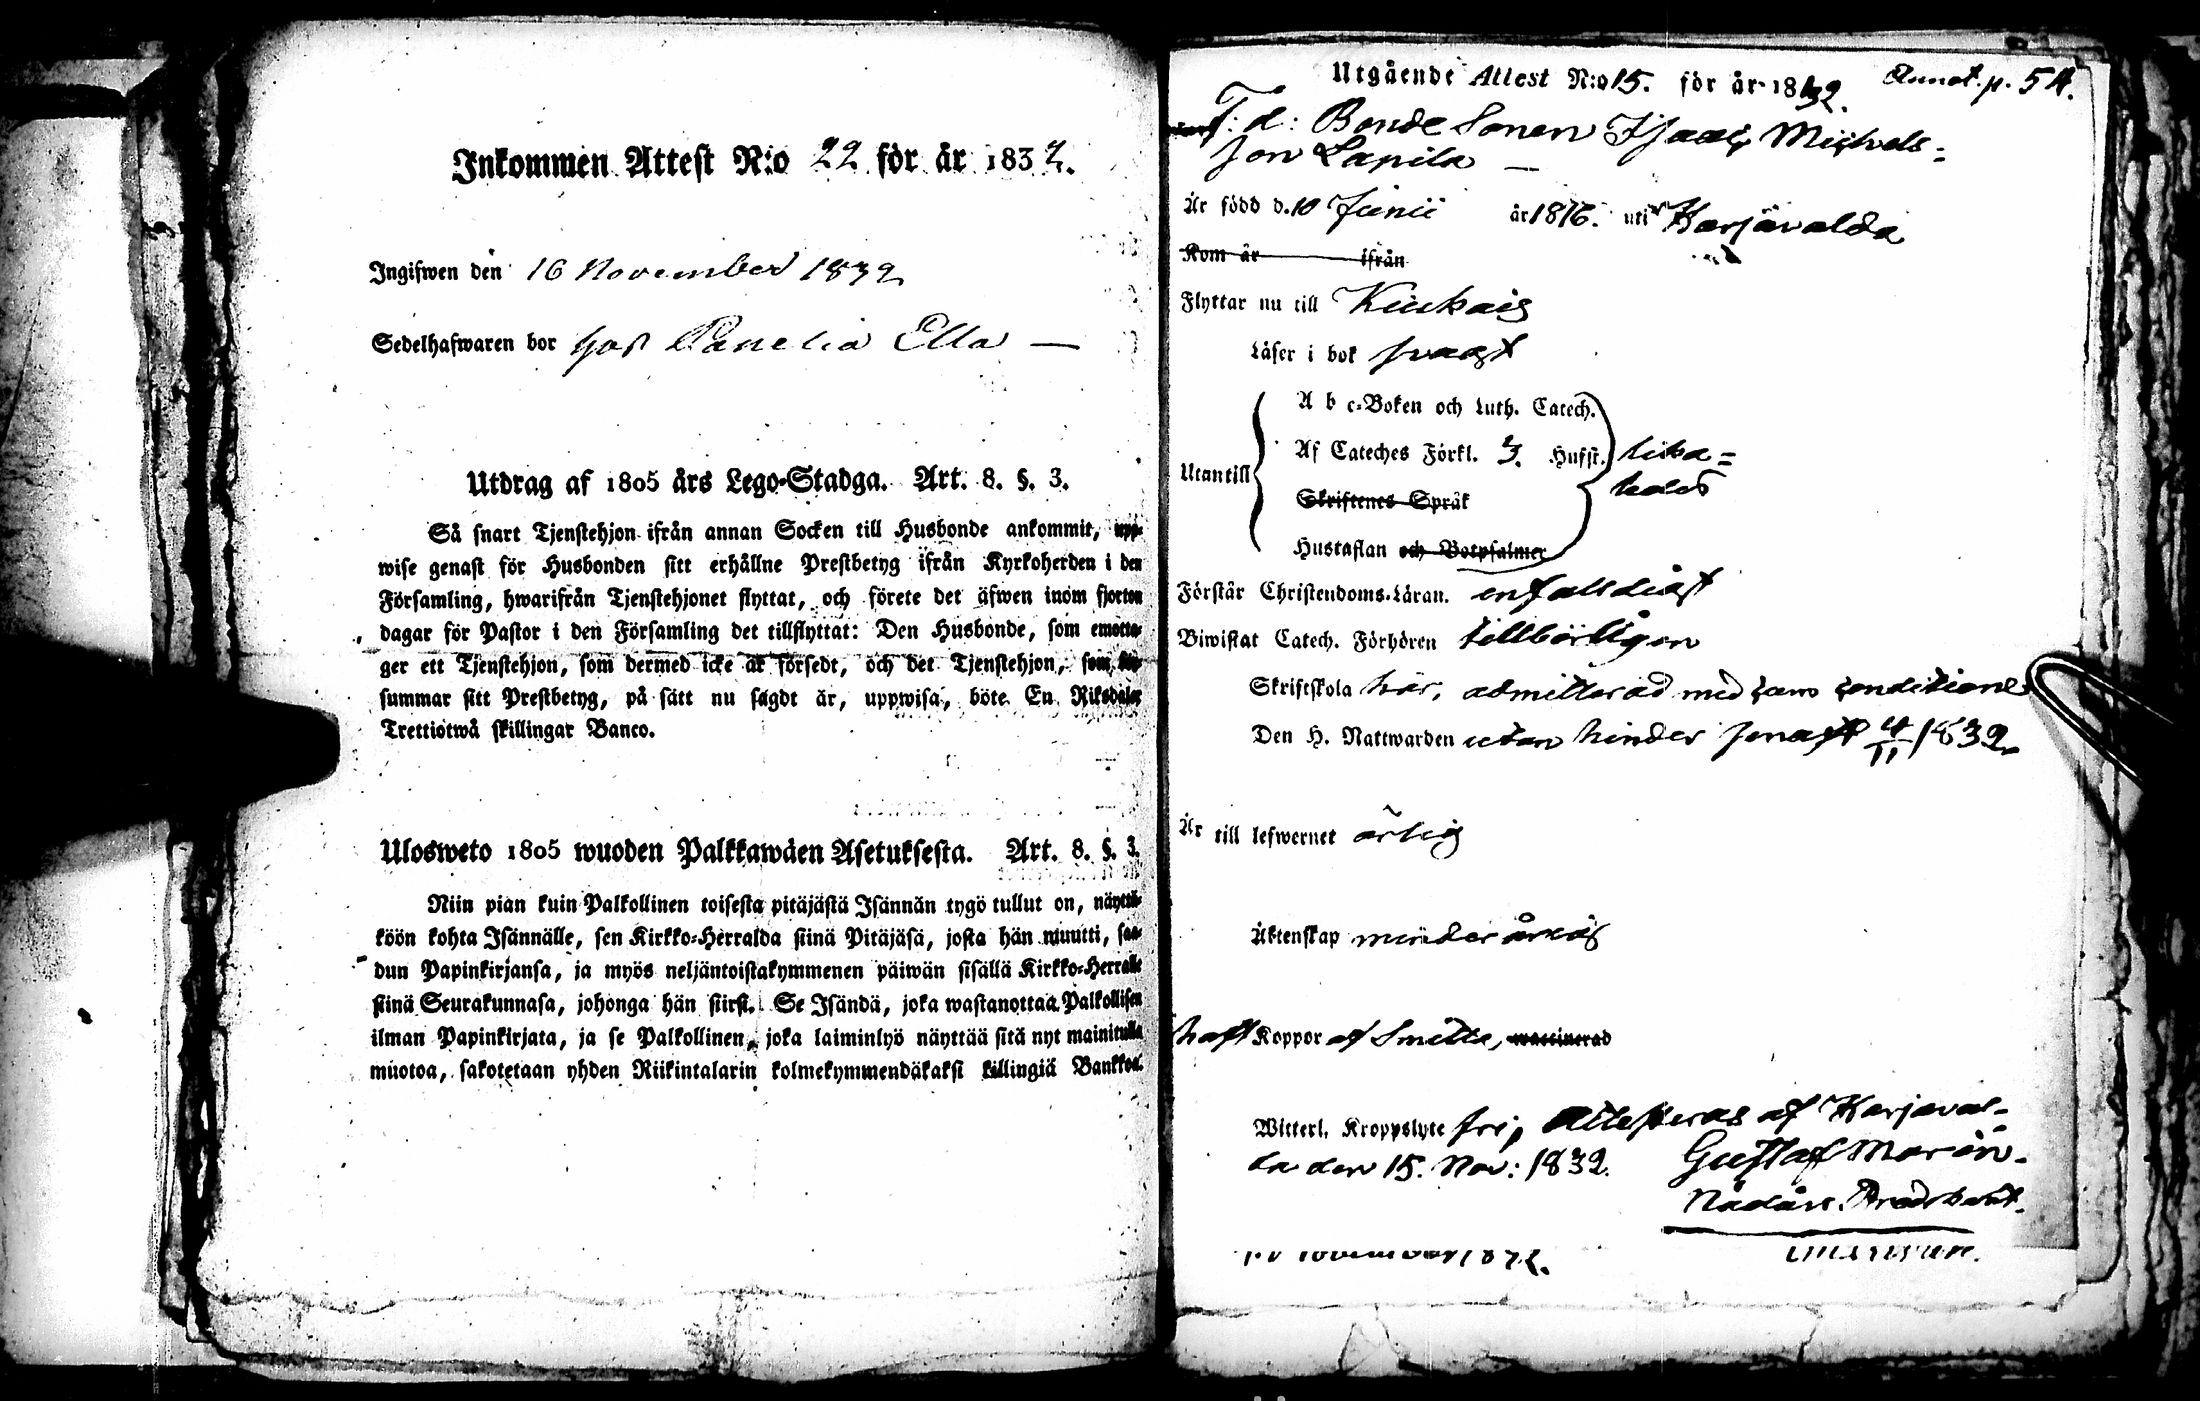 Inkommen Attest N:o 22 för år 1832.
Ingifwen den 16 November 1832
Sedelhafwaren bor hos Panelia Ella —
Utdrag af 1805 års Lego-Stadga. Art. 8. §. 3.
Så snart Tjenstehjon ifrån annan Socken till Husbonde ankommit, upp-
wise genast för Husbonden sitt erhållne Prestbetyg ifrån Kyrkoherden i den
Församling, hwarifrån Tjenstehjonet flyttat, och förete det äfwen inom fjorton
dagar för Pastor i den Församling det tillflyttat: Den Husbonde, som emotta-
ger ett Tjenstehjon, som dermed icke är försedt, och det Tjenstehjon, som för-
summar sitt Prestbetyg, på sätt nu sagdt är, uppwisa, böte En Riksdaler
Trettiotwå skillingar Banco.
Ulosweto 1805 wuoden Palkkawäen Asetuksesta. Art. 8. §. 3.
Niin pian kuin Palkollinen toisesta pitäjästä Isännän tygö tullut on, näyttä-
köön kohta Isännälle, sen Kirkko-Herralda siinä Pitäjäsä, josta hän muutti, saa-
dun Papinkirjansa, ja myös neljäntoistakymmenen päiwän sisällä Kirkko-Herralle
siinä Seurakunnasa, johonga hän siirsi. Se Isändä, joka wastanottaa Palkollisen
ilman Papinkirjata, ja se Palkollinen, joka laiminlyö näyttää sitä nyt mainitulla
muotoa, sakotetaan yhden Riikintalarin kolmekymmendäkaksi killingiä Bankkoa.
Utgående Attest N:o 15. för år 1832. Annot. p. 54.
T: d: Bonde Sonen Isaac Michels-
son Lapila —
Är född d. 10 Junii år 1816. uti Karjavalda
Kom år ifrån
Flyttar nu till Kiukais
Läser i bok svagt
A b c-Boken och Luth. Catech.
Utantill Af Cateches Förkl. 3. Husst. lika-
Skriftenes Språk ledes
Hustaflan och Botpsalmer
Förstår Christendoms-Läran. enfalldigt
Biwistat Catech. Förhören tillbörligen
Skriftskola här, admitterad med
Den H. Nattwarden utan hinder senast 4/11 1832.
Är till lefwernet ärlig
Äktenskap minderårig
haft Koppor af Smitta, waccinerad
Witterl. Kroppslyte fri, Attesteras af Karjaval-
da den 15. Nov: 1832. Gustaf Morin.
Nådårs Predikant.